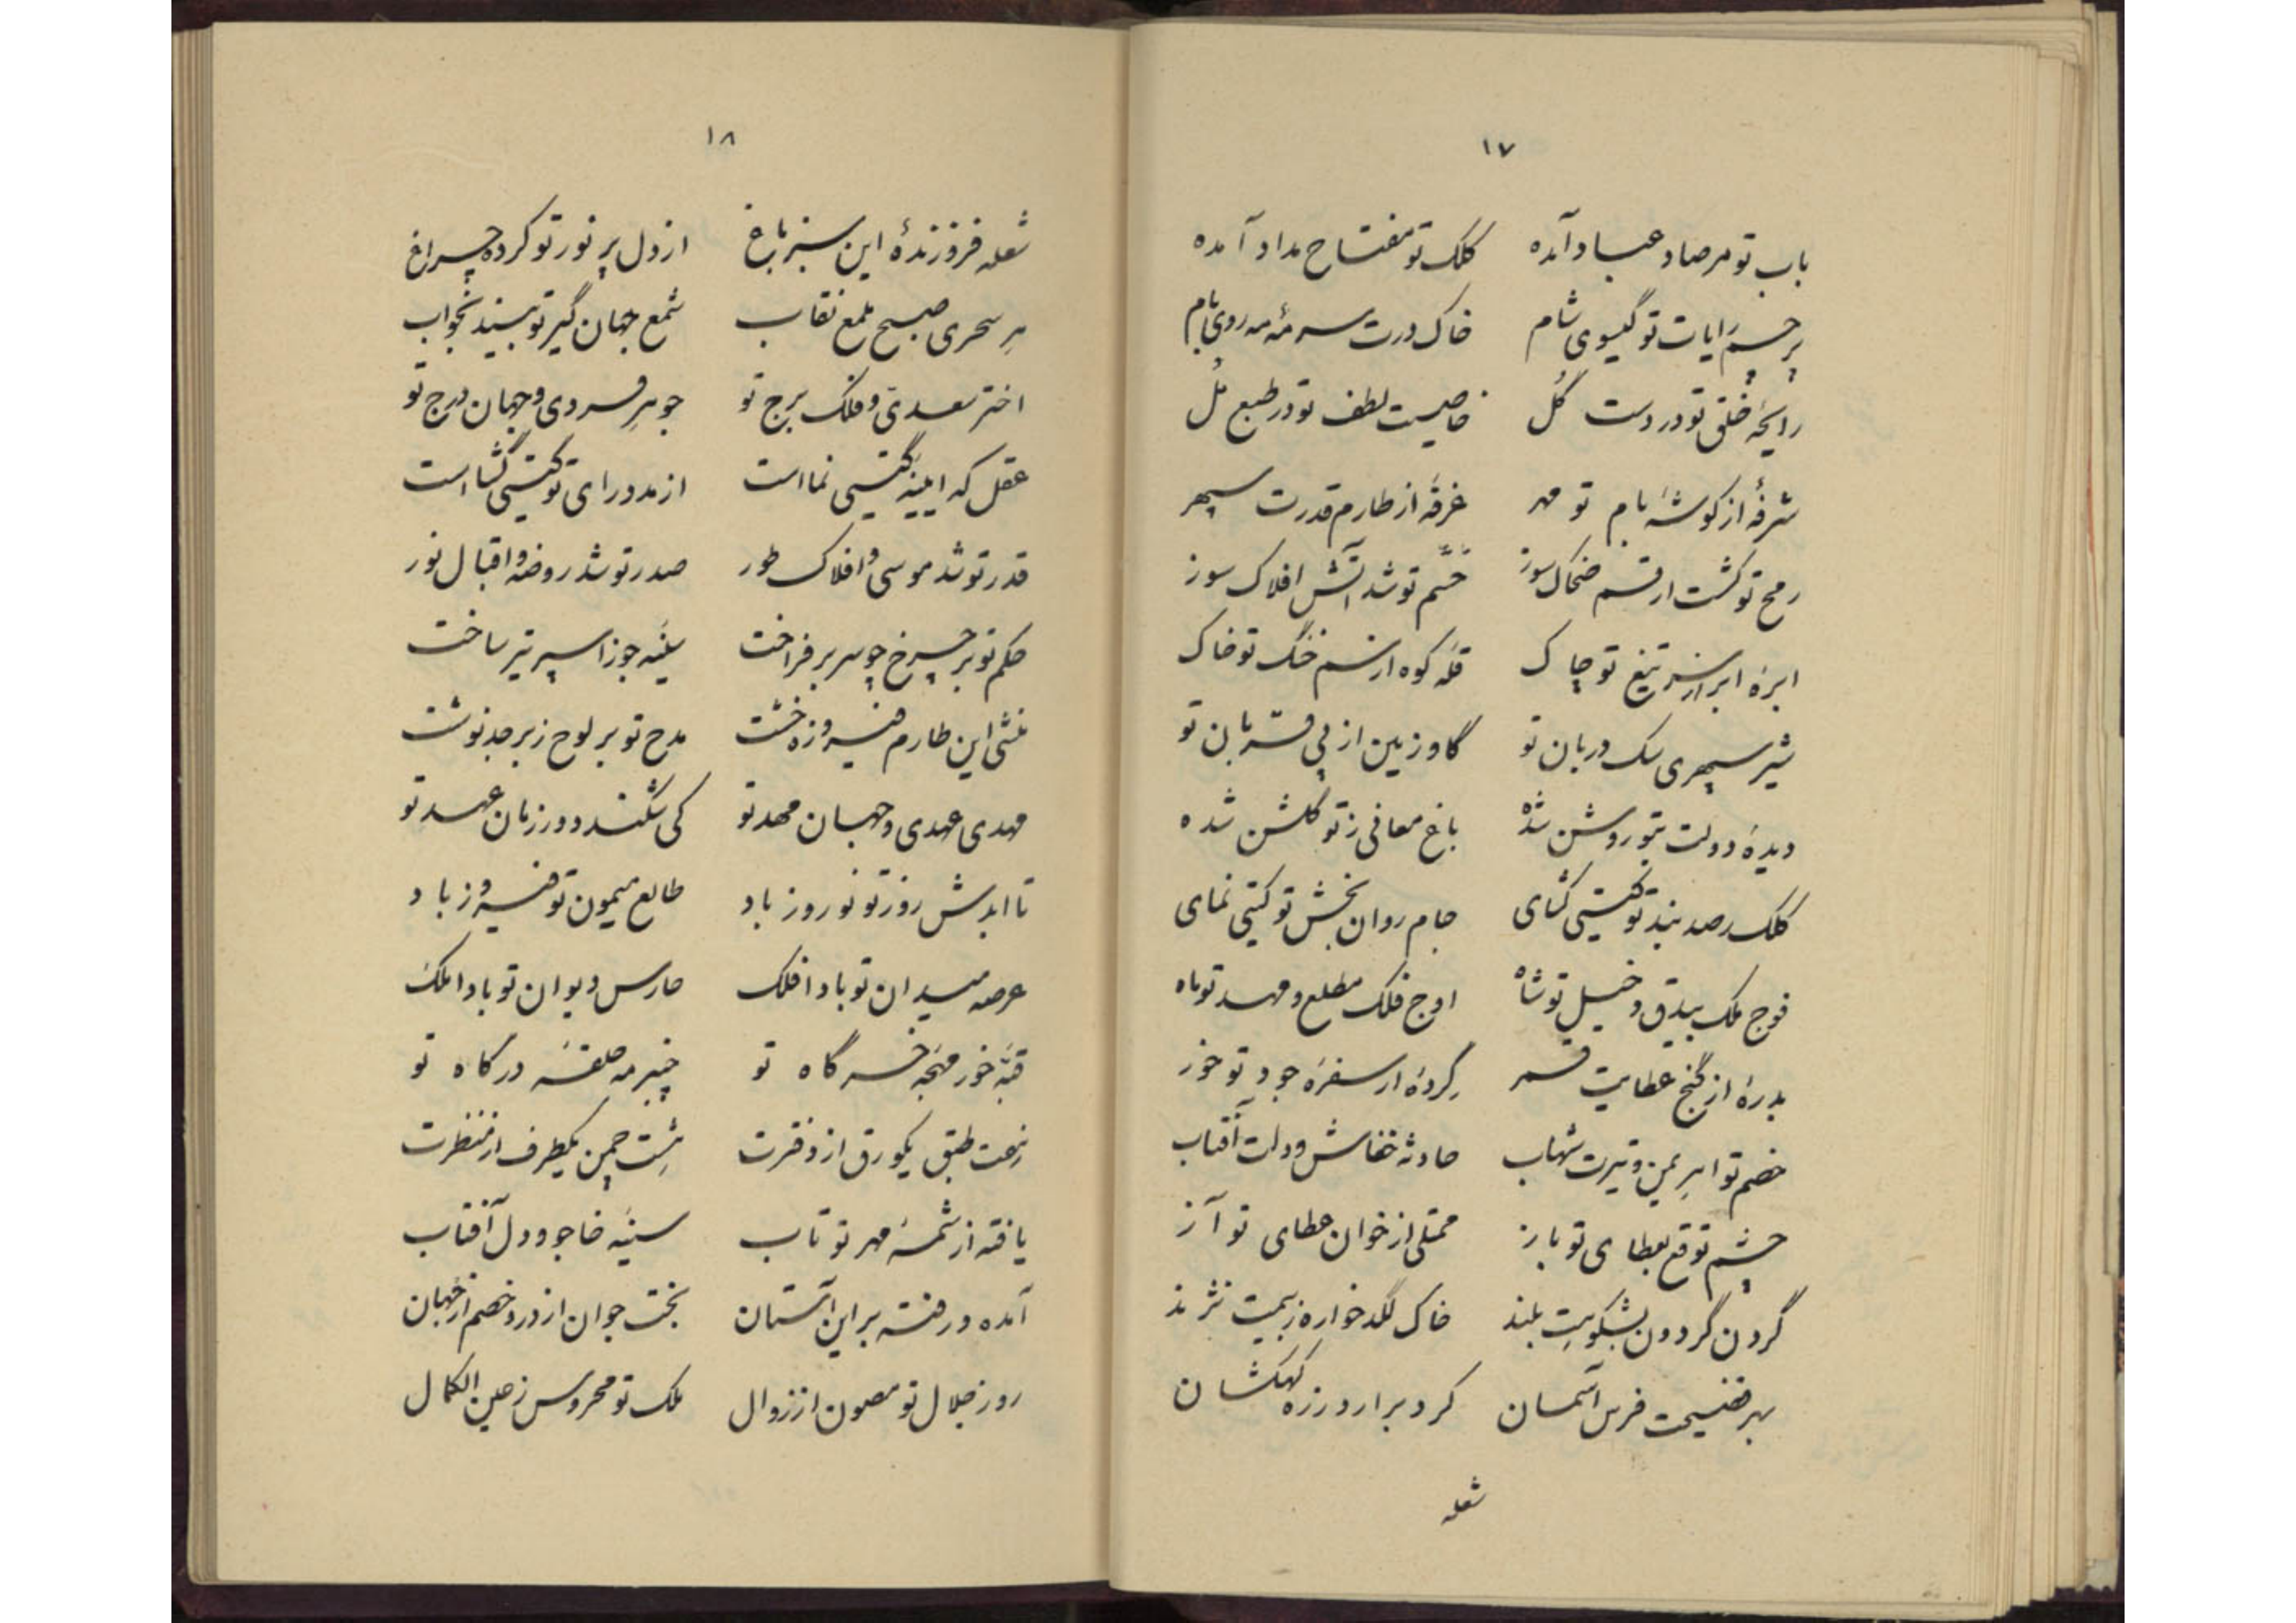 ۱۷
باب تو مرصاد عباد آمده کلک تو مفتاح مداد آمده
پرچم رایات تو گیسوی شام خاک درت سرمهٔ مه روی بام
رایحهٔ خلق تو در دست گل خاصیت لطف تو در طبع مل
شرفهٔ از کوشهٔ بام تو مهر غرفهٔ از طارم قدرت سپهر
رمح تو کشت ارقم ضحاک سوز خشم تو شد آتش افلاک سوز
ابرهٔ ابر از سر تیغ تو چاک قلهٔ کوه از سم خنگ تو خاک
شیر سپهری سک دربان تو گاو زمین از پی قربان تو
دیدهٔ دولت بتو روشن شده باغ معانی ز تو گلشن شده
کلک رصد بند تو گیتی گشای جام روان بخش تو گیتی نمای
فوج ملک بیدق و خیل تو شاه اوج فلک مطلع و مهد تو ماه
بدرهٔ از گنج عطایت قمر گردهٔ از سفرهٔ جود تو خور
خصم تو اهریمن و تیرت شهاب حادثه خفاش و دلت آفتاب
چشم توقع بعطای تو باز ممتلی از خوان عطای تو آز
گردن گردون بشکوهت بلند خاک لگد خواره ز بیمت نژند
بهر فضیحت فرس آسمان کرد برارد ز ره کهکشان
شعله
۱۸
شعله فروزندهٔ این سبز باغ از دل پر نور تو کرده چراغ
هر سحری صبح ملمع نقاب شمع جهان گیر تو بیند بخواب
اختر سعدی و فلک برج تو جوهر فردی و جهان درج تو
عقل که ایینهٔ گیتی نما است از مدد رای تو گیتی گشا است
قدر تو شد موسی و افلاک طور صدر تو شد روضه و اقبال نور
حکم تو بر چرخ چو سر بر فراخت سینهٔ جوزا سپر تیر ساخت
منشی این طارم فیروزه خشت مدح تو بر لوح زبرجد نوشت
مهدی عهدی و جهان مهد تو کی شکند دور زمان عهد تو
تا ابدش روز تو نوروز باد طالع میمون تو فیروز باد
عرصه میدان تو باد افلک حارس دیوان تو باد املک
قبهٔ خور مهجهٔ خرگاه تو چنبر مه حلقهٔ درگاه تو
نه طبق یکورق از دفترت هشت چمن یکطرف از منظرت
یافته از شمسهٔ مهر تو تاب سینهٔ خاجو و دل آفتاب
آمده و رفته بر این آستان بخت جوان از در و خصم از جهان
روز جلال تو مصون از زوال ملک تو محروس ز عین الکمال